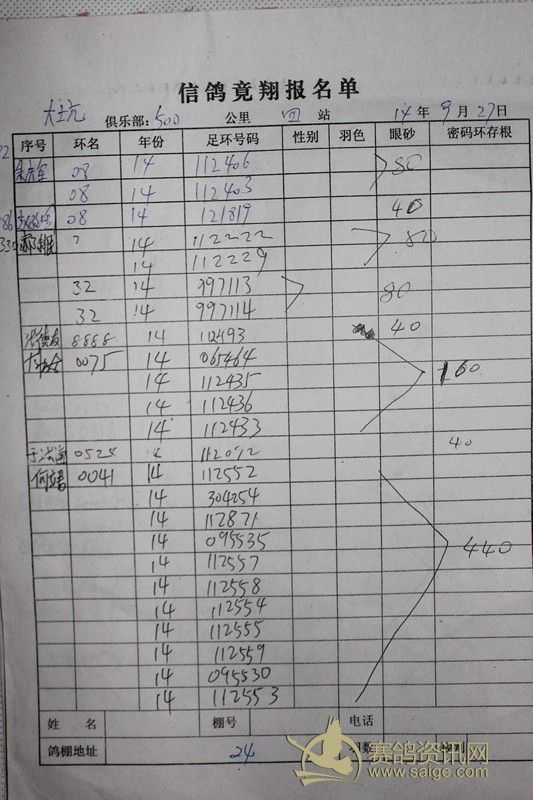 信鸽竟翔报名单
大坑 俱乐部: 500 公里 四 站 14 年 9 月 27 日
序号 环名 年份 足环号码 性别 羽色 眼砂 密码环存根
08 14 112406 80
08 14 112403
08 14 121819 40
? 14 112222 80
14 112229
32 14 997113 80
32 14 997114
8888 14 112493 40
0075 14 065464
14 112435 160
14 112436
14 112433
0528 14 112072 40
0041 14 112552
14 304254
14 112871
14 095535 440
14 112557
14 112558
14 112554
14 112555
14 112559
14 095530
14 112553
姓 名 棚号 电话
鸽棚地址 24
赛鸽资讯网
www.saige.com